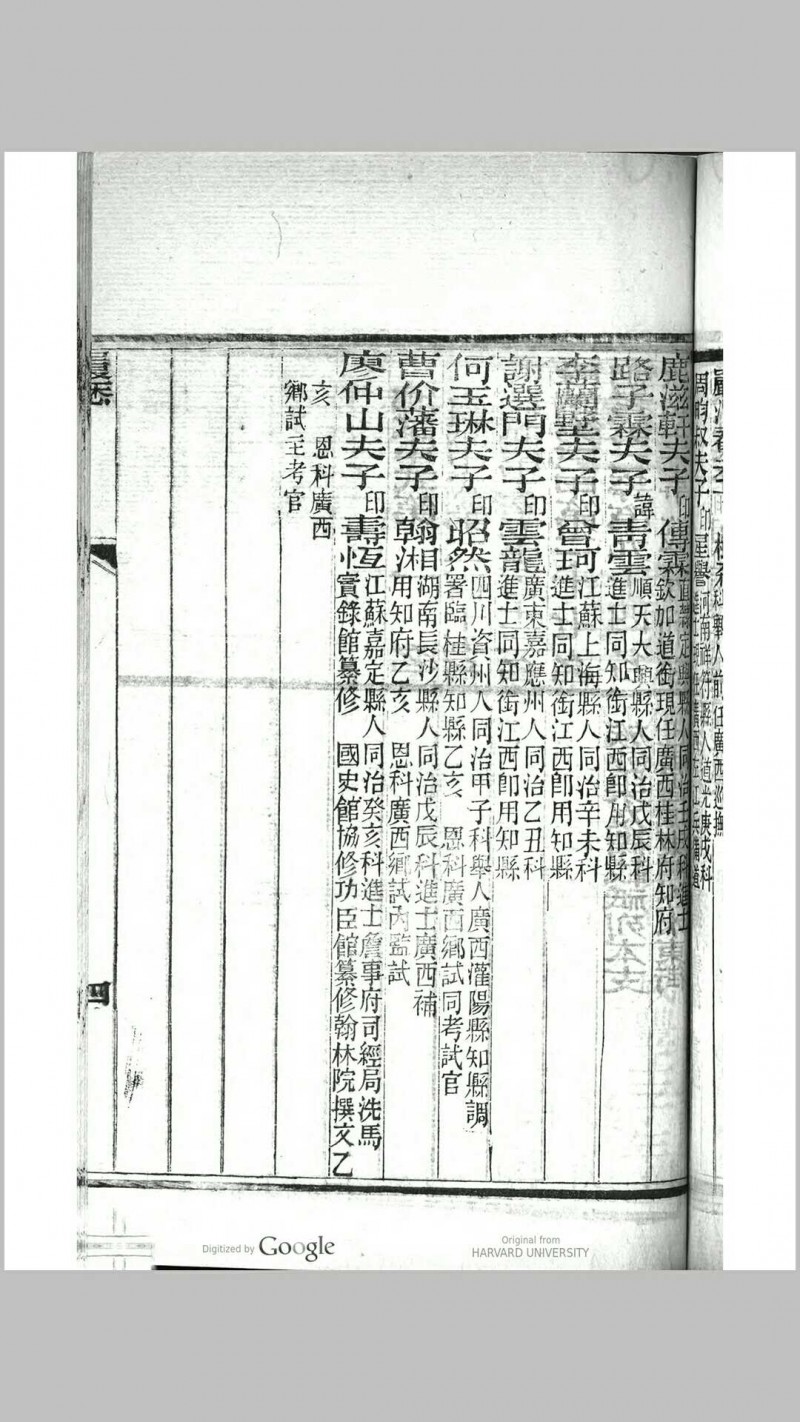 周昀叔夫子印星譽河南祥符縣人道光庚戌科
鹿滋軒夫子印傳霖直隸定興縣人同治壬戌科進士
欽加道銜現任廣西桂林府知府
路子霖夫子諱青雲順天大興縣人同治戊辰科
進士同知銜江西卽用知縣
李蘭墅夫子印曾珂江蘇上海縣人同治辛未科
進士同知銜江西卽用知縣
謝選門夫子印雲龍廣東嘉應州人同治乙丑科
進士同知銜江西卽用知縣
何玉琳夫子印昭然四川資州人同治甲子科舉人廣西灌陽縣知縣調
署臨桂縣知縣乙亥 恩科廣西鄉試同考試官
曹价藩夫子印翰湘湖南長沙縣人同治戊辰科進士廣西補
用知府乙亥 恩科廣西鄉試內監試
廖仲山夫子印壽恆江蘇嘉定縣人同治癸亥科進士詹事府司經局洗馬
實錄館纂修 國史館協修功臣館纂修翰林院撰文乙
亥 恩科廣西
鄉試主考官
履歷
四
Digitized by Google
Original from
HARVARD UNIVERSITY